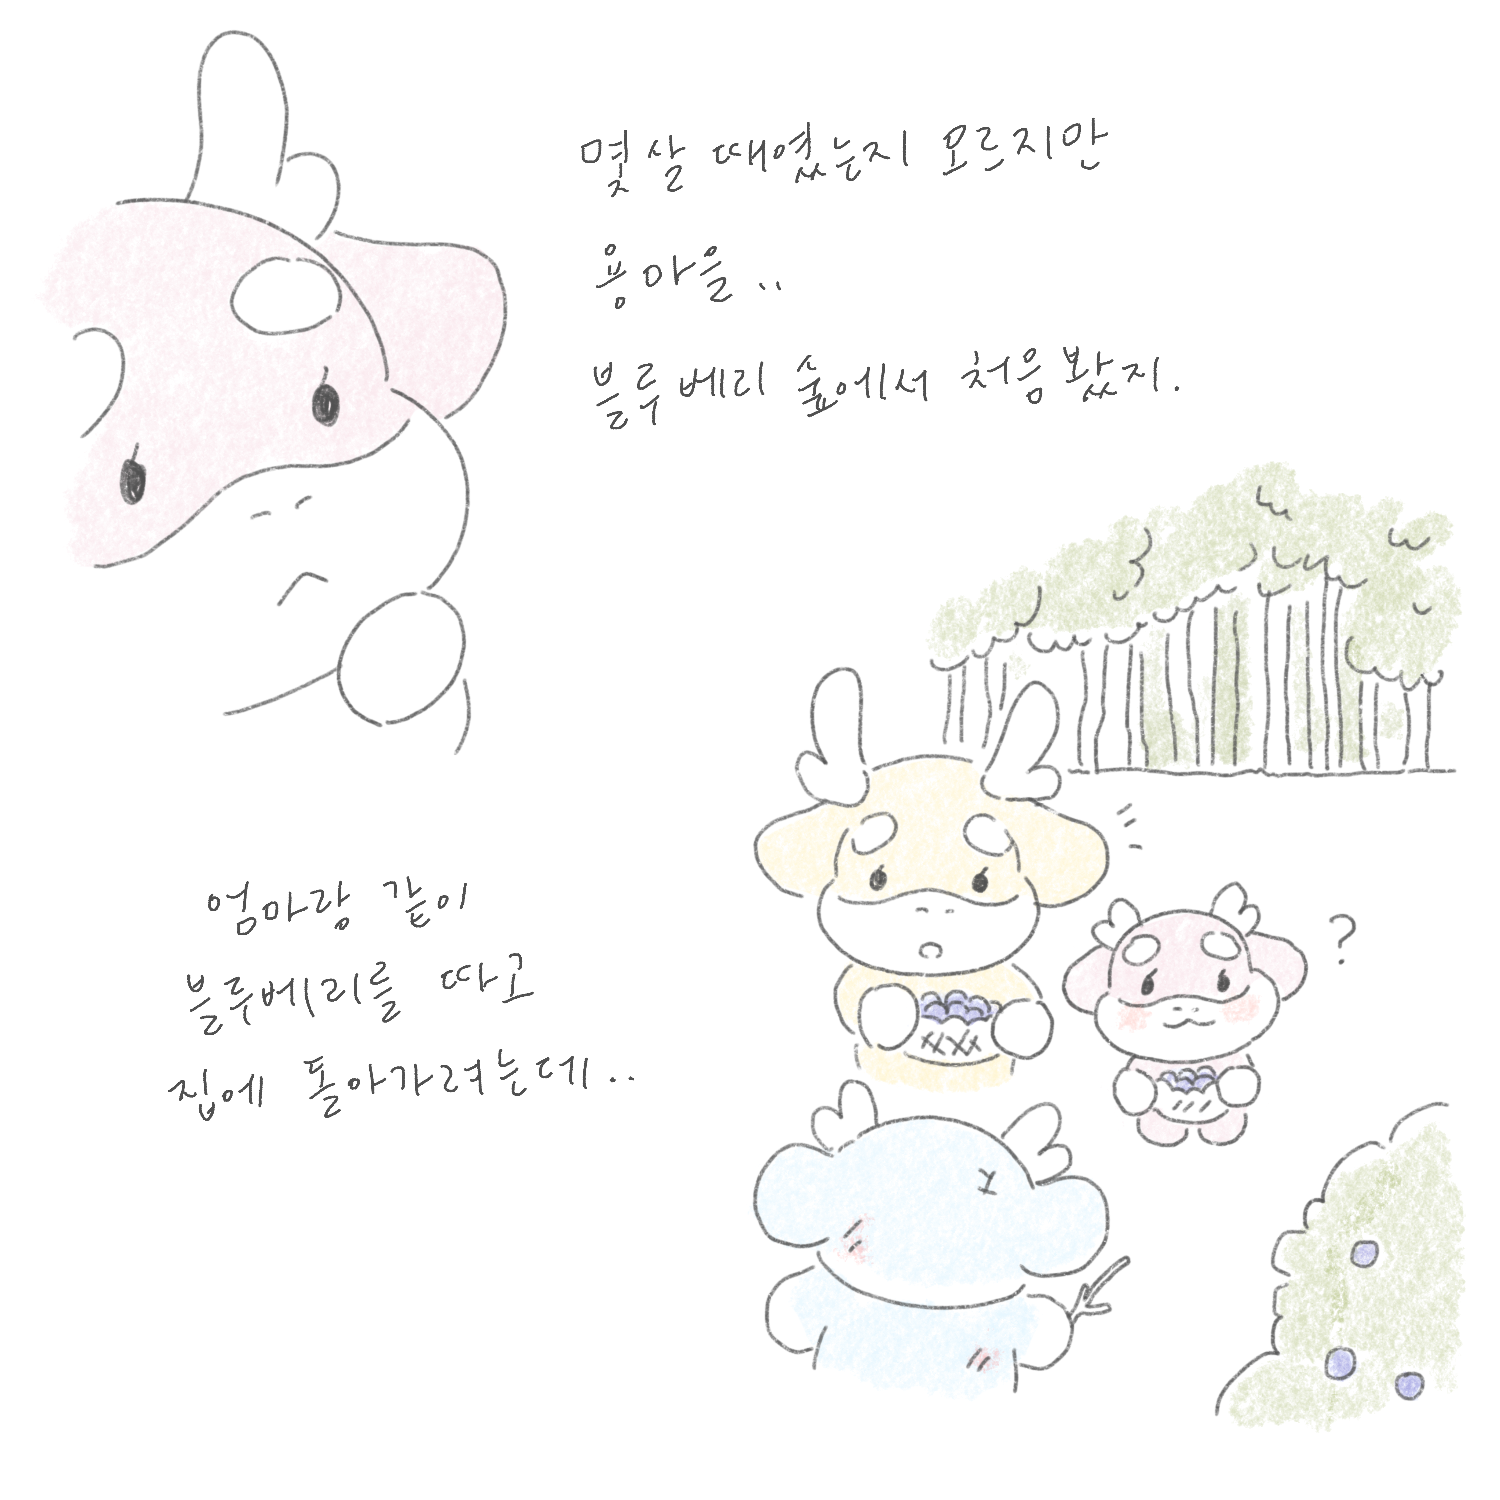 몇 살 때였는지 모르지만
용마을..
블루베리 숲에서 처음 봤지.
?
엄마랑 같이
블루베리를 따고
집에 돌아가려는데..